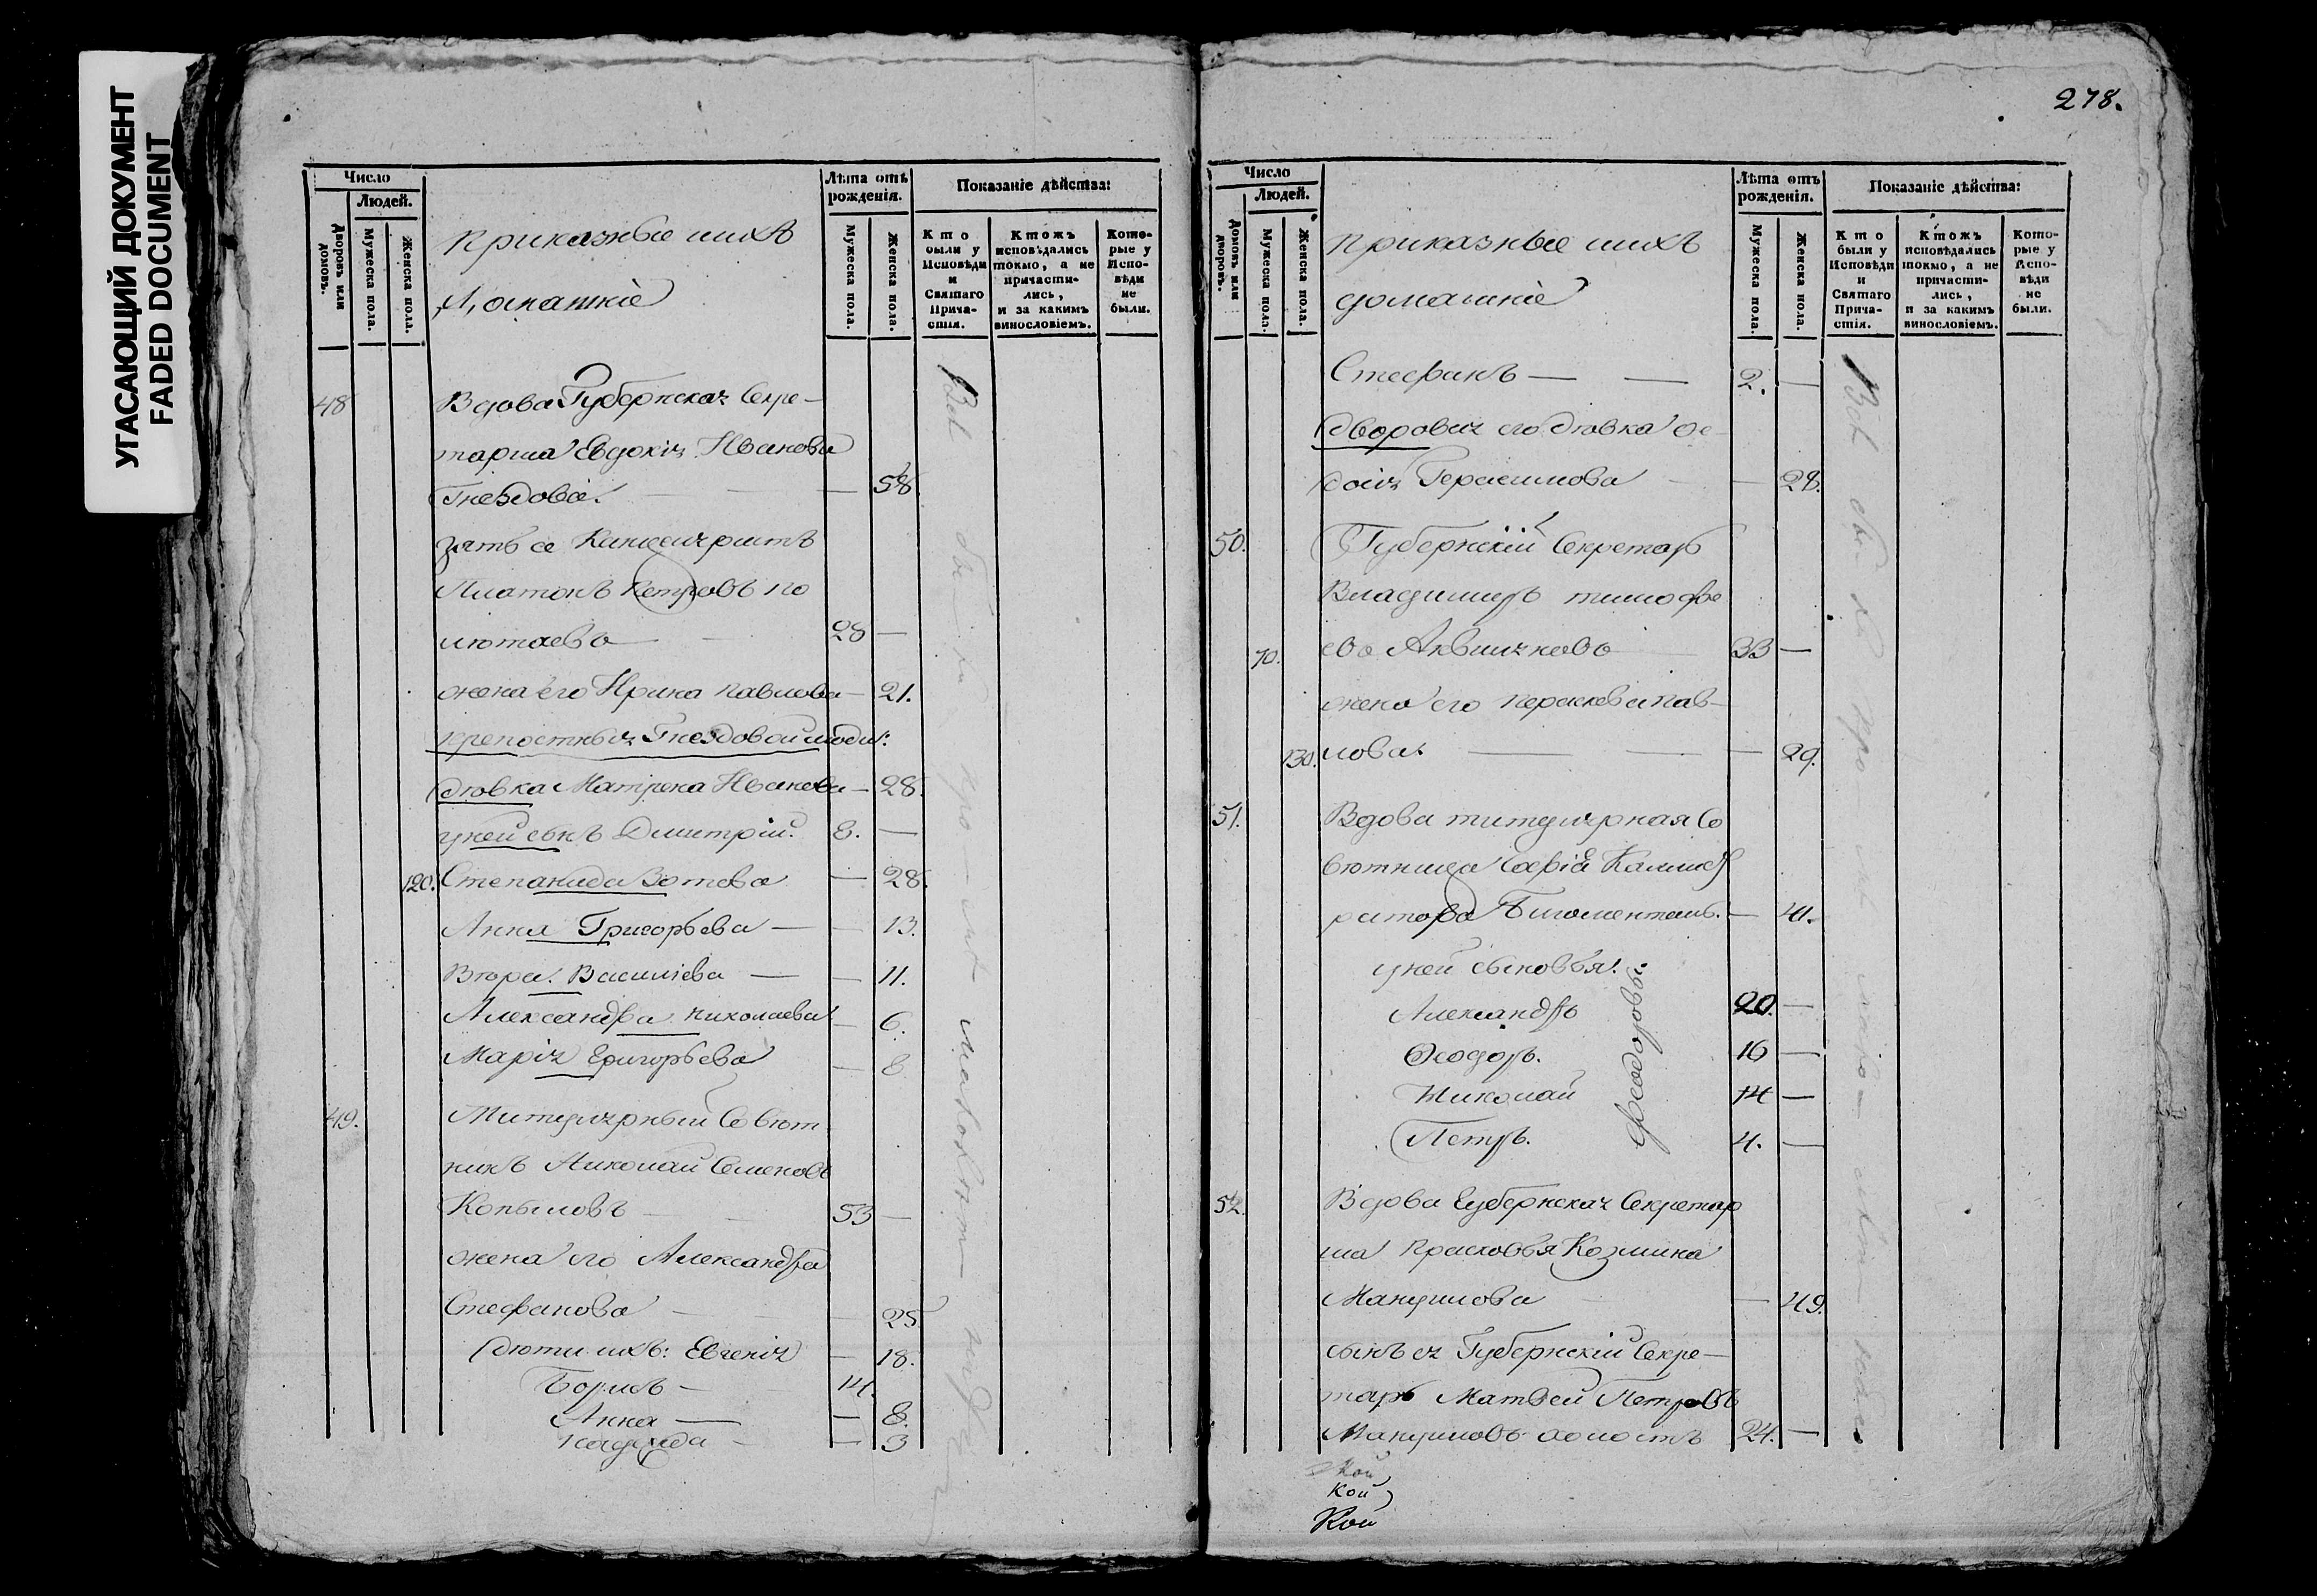 УГАСАЮЩИЙ ДОКУМЕНТ
FADED DOCUMENT
Число
Людей.
Дворовъ или домовъ.
Мужеска пола.
Женска пола.
Приказные ихъ
Домашніе
Лѣта отъ
рожденія.
Мужеска пола.
Женска пола.
Показаніе дѣйства:
Кто
были у
Исповѣди
и
Святаго
Прича-
стія.
Ктожъ
исповѣдались
токмо, а не
причасти-
лись,
и за какимъ
винословіемъ.
Кото-
рые у
Испо-
вѣди
не
были.
48 Вдова Губернская Секре-
тарша Евдокія Иванова
Гнездова. — 58
зять ее Канцеляристъ
Платонъ Петровъ По
лютаевъ 28 —
жена его Ирина Павлова — 21.
крепостныя Гнездовой люди:
дѣвка Матрена Иванова — 28.
у ней сынъ Димитрій. 8. —
120. Степанида Зотова — 28.
Анна Григорьева — 13.
Вѣра Василіева — 11.
Александра Николаева — 6.
Марія Григорьева — 8
49. Титулярный Совѣт
никъ Николай Семеновъ
Копыловъ 53 —
жена его Александра
Стефанова — 25
дѣти ихъ: Евгенія — 18.
Борисъ — 14.
Анна — 8.
Надежда — 3
Всѣ
278.
Число
Людей.
Домовъ или дворовъ.
Мужеска пола.
Женска пола.
Приказные ихъ
домашніе
Лѣта отъ
рожденія.
Мужеска пола.
Женска пола.
Показаніе дѣйства:
Кто
были у
Исповѣди
и
Святаго
Прича-
стія.
Ктожъ
исповѣдались
токмо, а не
причасти-
лись,
и за какимъ
винословіемъ.
Кото-
рые у
Испо-
вѣди
не
были.
Стефанъ — — 2. —
дворовая его дѣвка Ѳе
досія Герасимова — 28.
50. Губернскій Секретарь
Владимиръ Тимофѣ
70. евъ 33 —
жена его Параскева Пав-
130. лова. — — — 29.
51. Вдова титулярная Со
вѣтница Софія
— 41.
у ней сыновья:
Александръ 20. —
Ѳеодоръ. 16 —
Николай 14 —
Петръ. 4. —
Ѳеодоровы
52. Вдова Губернская Секретар
ша Прасковья Козмина
Мануилова — 49.
сынъ ея Губернскій Секре-
тарь Матвей Петровъ
Мануиловъ холостъ 24. —
Всѣ
Кой
Кой
Кой